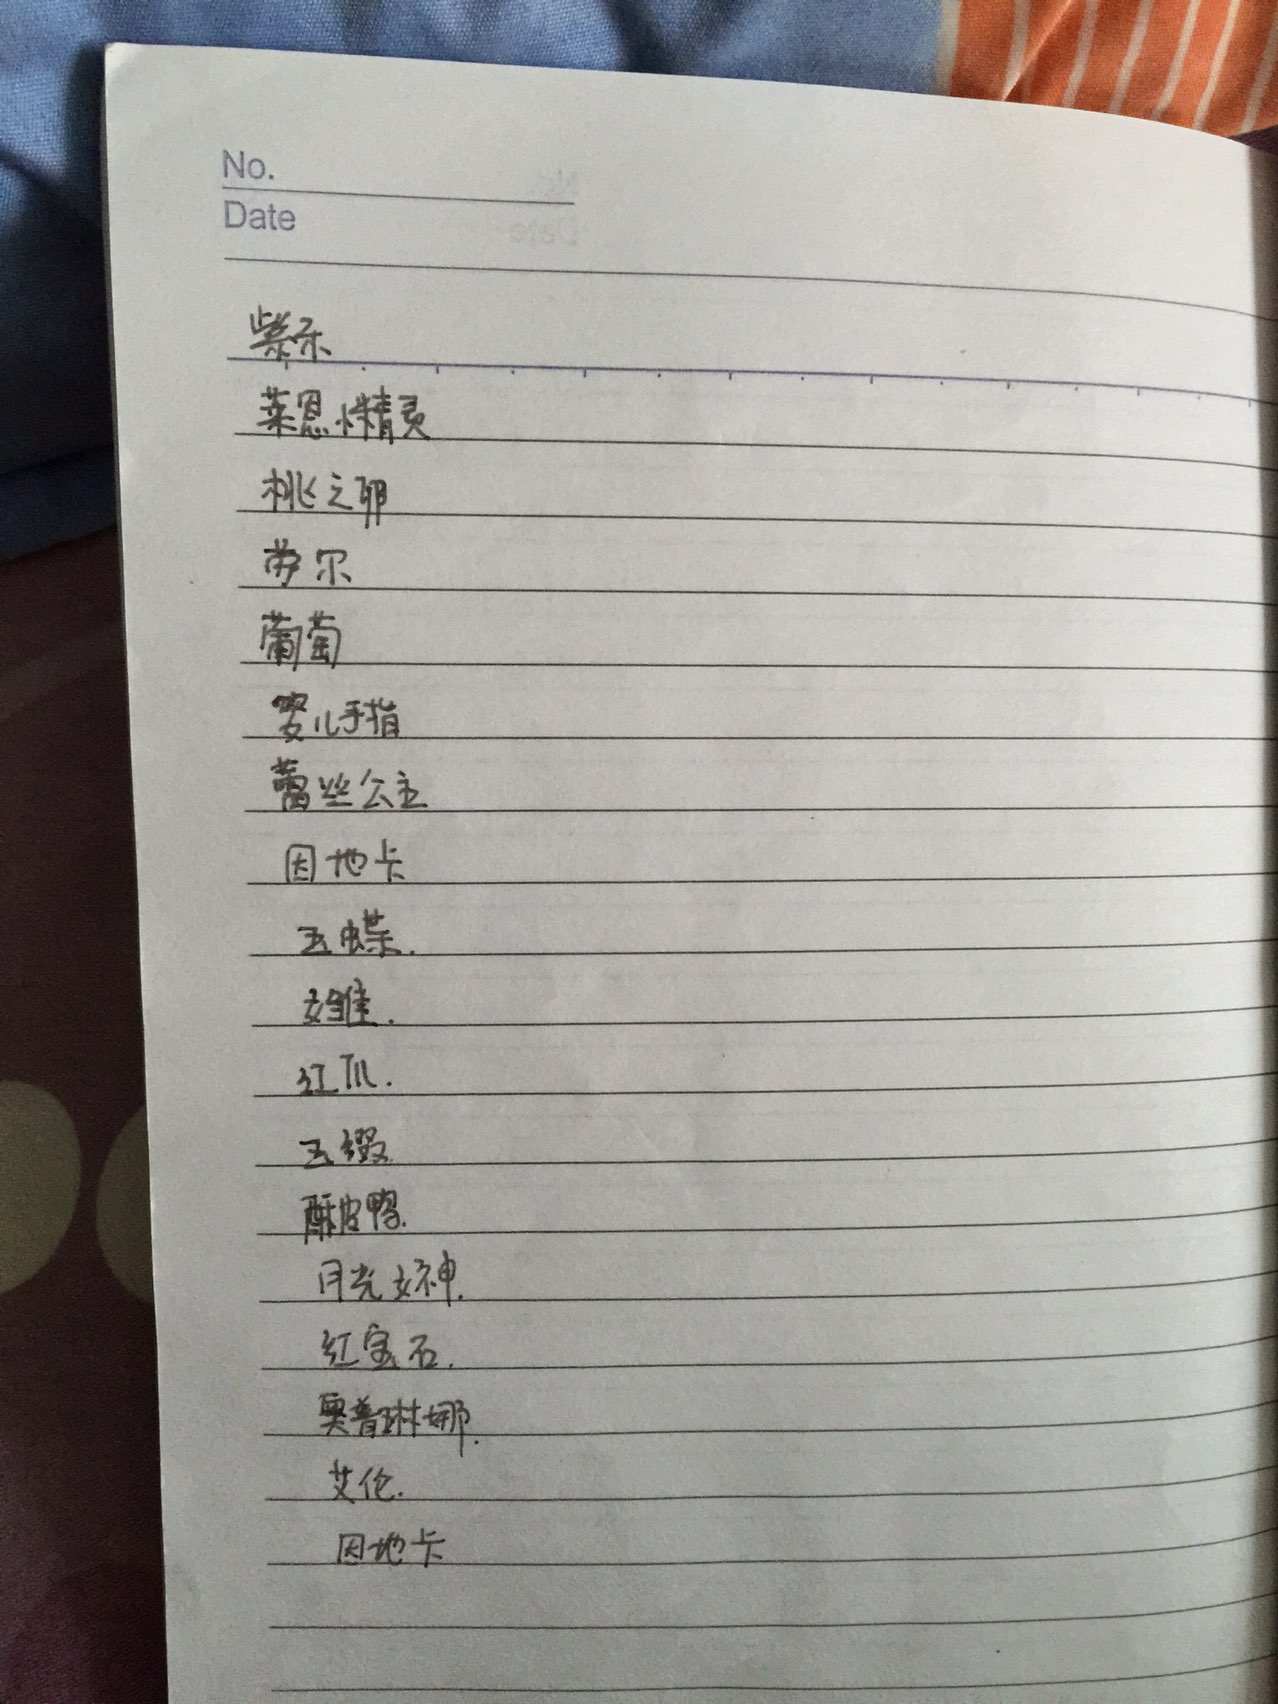 No.
Date
紫乐
莱恩小精灵
桃之卵
劳尔
葡萄
婴儿手指
蕾丝公主
因地卡
玉蝶.
雏.
红爪.
玉缀.
酥皮鸭.
月光女神.
红宝石.
奥普琳娜.
艾伦.
因地卡